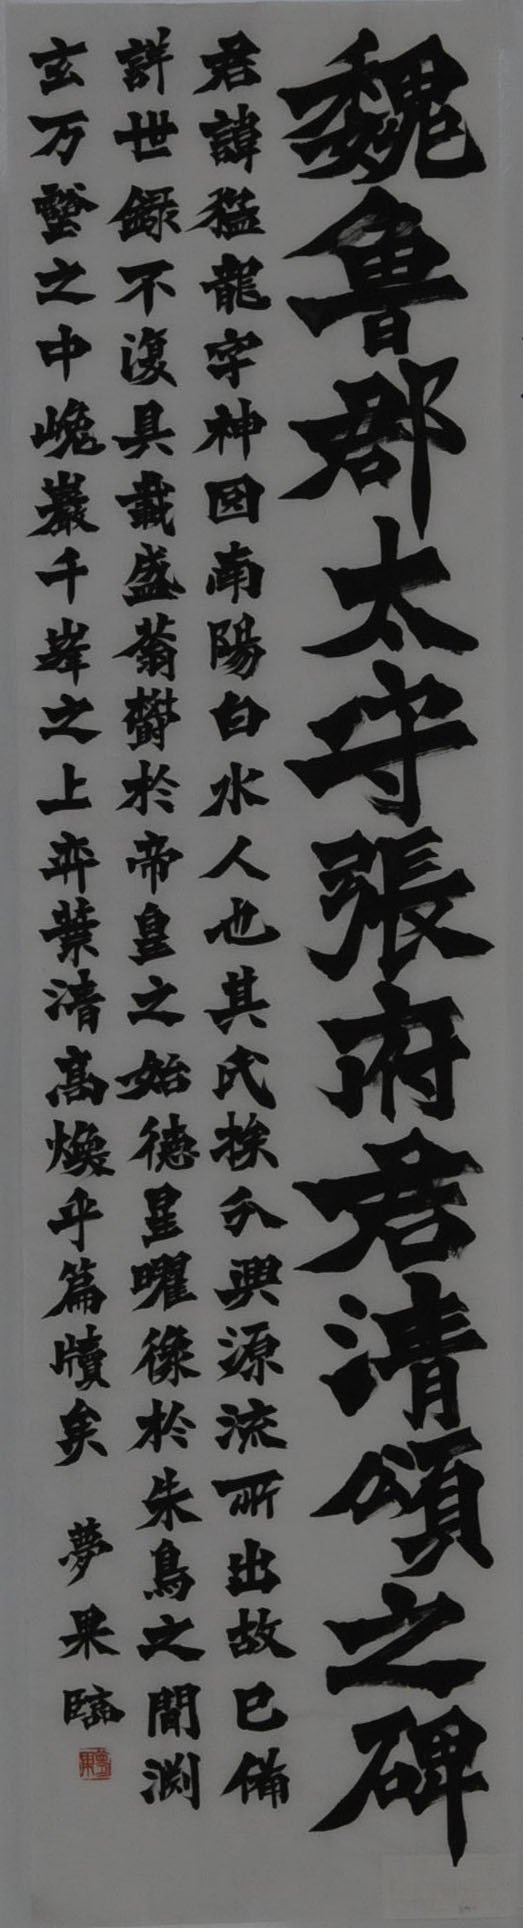 魏魯郡太守張府君清頌之碑
君諱猛龍字神囧南陽白水人也其氏族分興源流所出故已備
詳世録不復具載盛蓊欝於帝皇之始德星曜像於朱鳥之間淵
玄万壑之中巉巖千峯之上弈葉清高煥乎篇牘矣 夢果臨
夢果